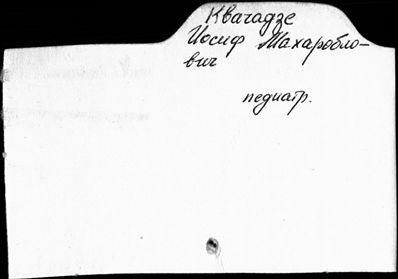 Квачадзе
Иосиф Махаробло-
вич
педиатр.